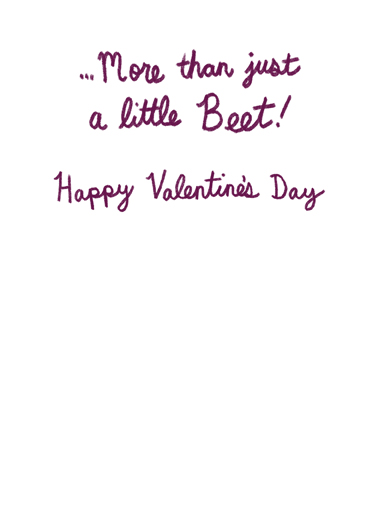 ...More than just
a little Beet!
Happy Valentine's Day